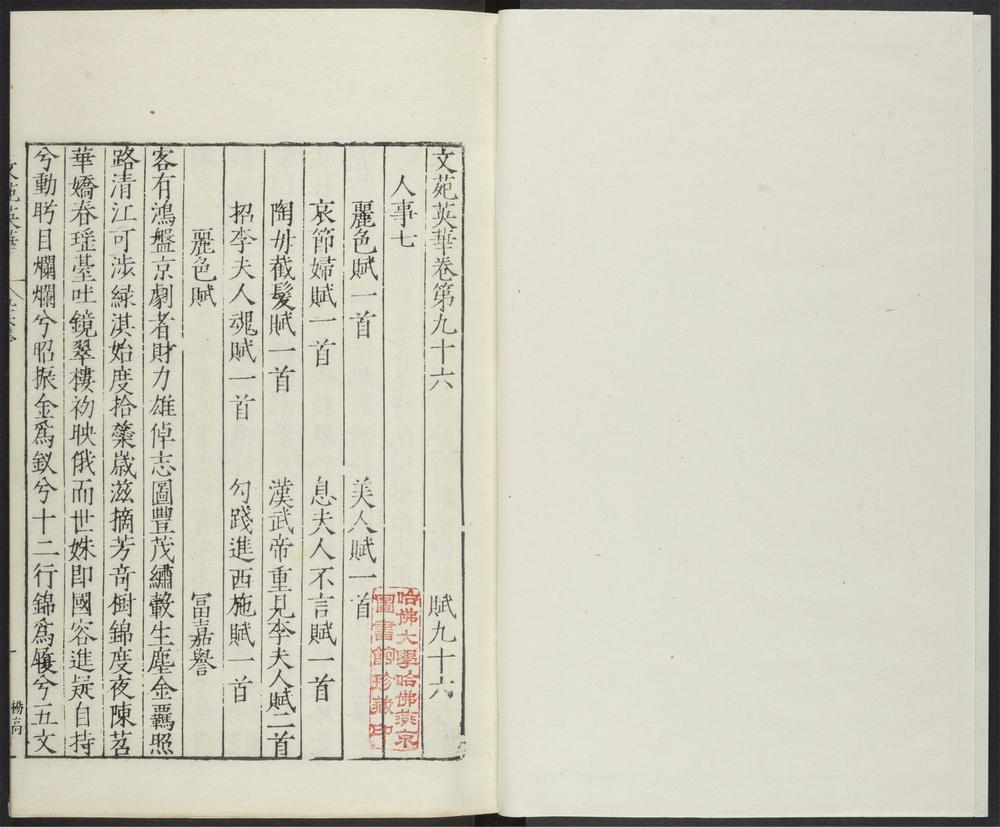 文苑英華卷第九十六 賦九十六
人事七
麗色賦一首 美人賦一首
哀節婦賦一首 息夫人不言賦一首
陶母截髮賦一首 漢武帝重見李夫人賦二首
招李夫人魂賦一首 勾踐進西施賦一首
麗色賦 冨嘉譽
客有鴻盤京劇者財力雄倬志圖豐茂繡轂生塵金覊照
路清江可涉緑淇始度拾蘂歲滋摘芳竒樹錦度夜陳苕
華嬌春瑤臺吐鏡翠樓初映俄而世姝即國容進疑自持
兮動盻目爛爛兮昭振金爲釵兮十二行錦爲履兮五文
文苑英華
哈佛大學哈佛燕京
圖書館珍藏印